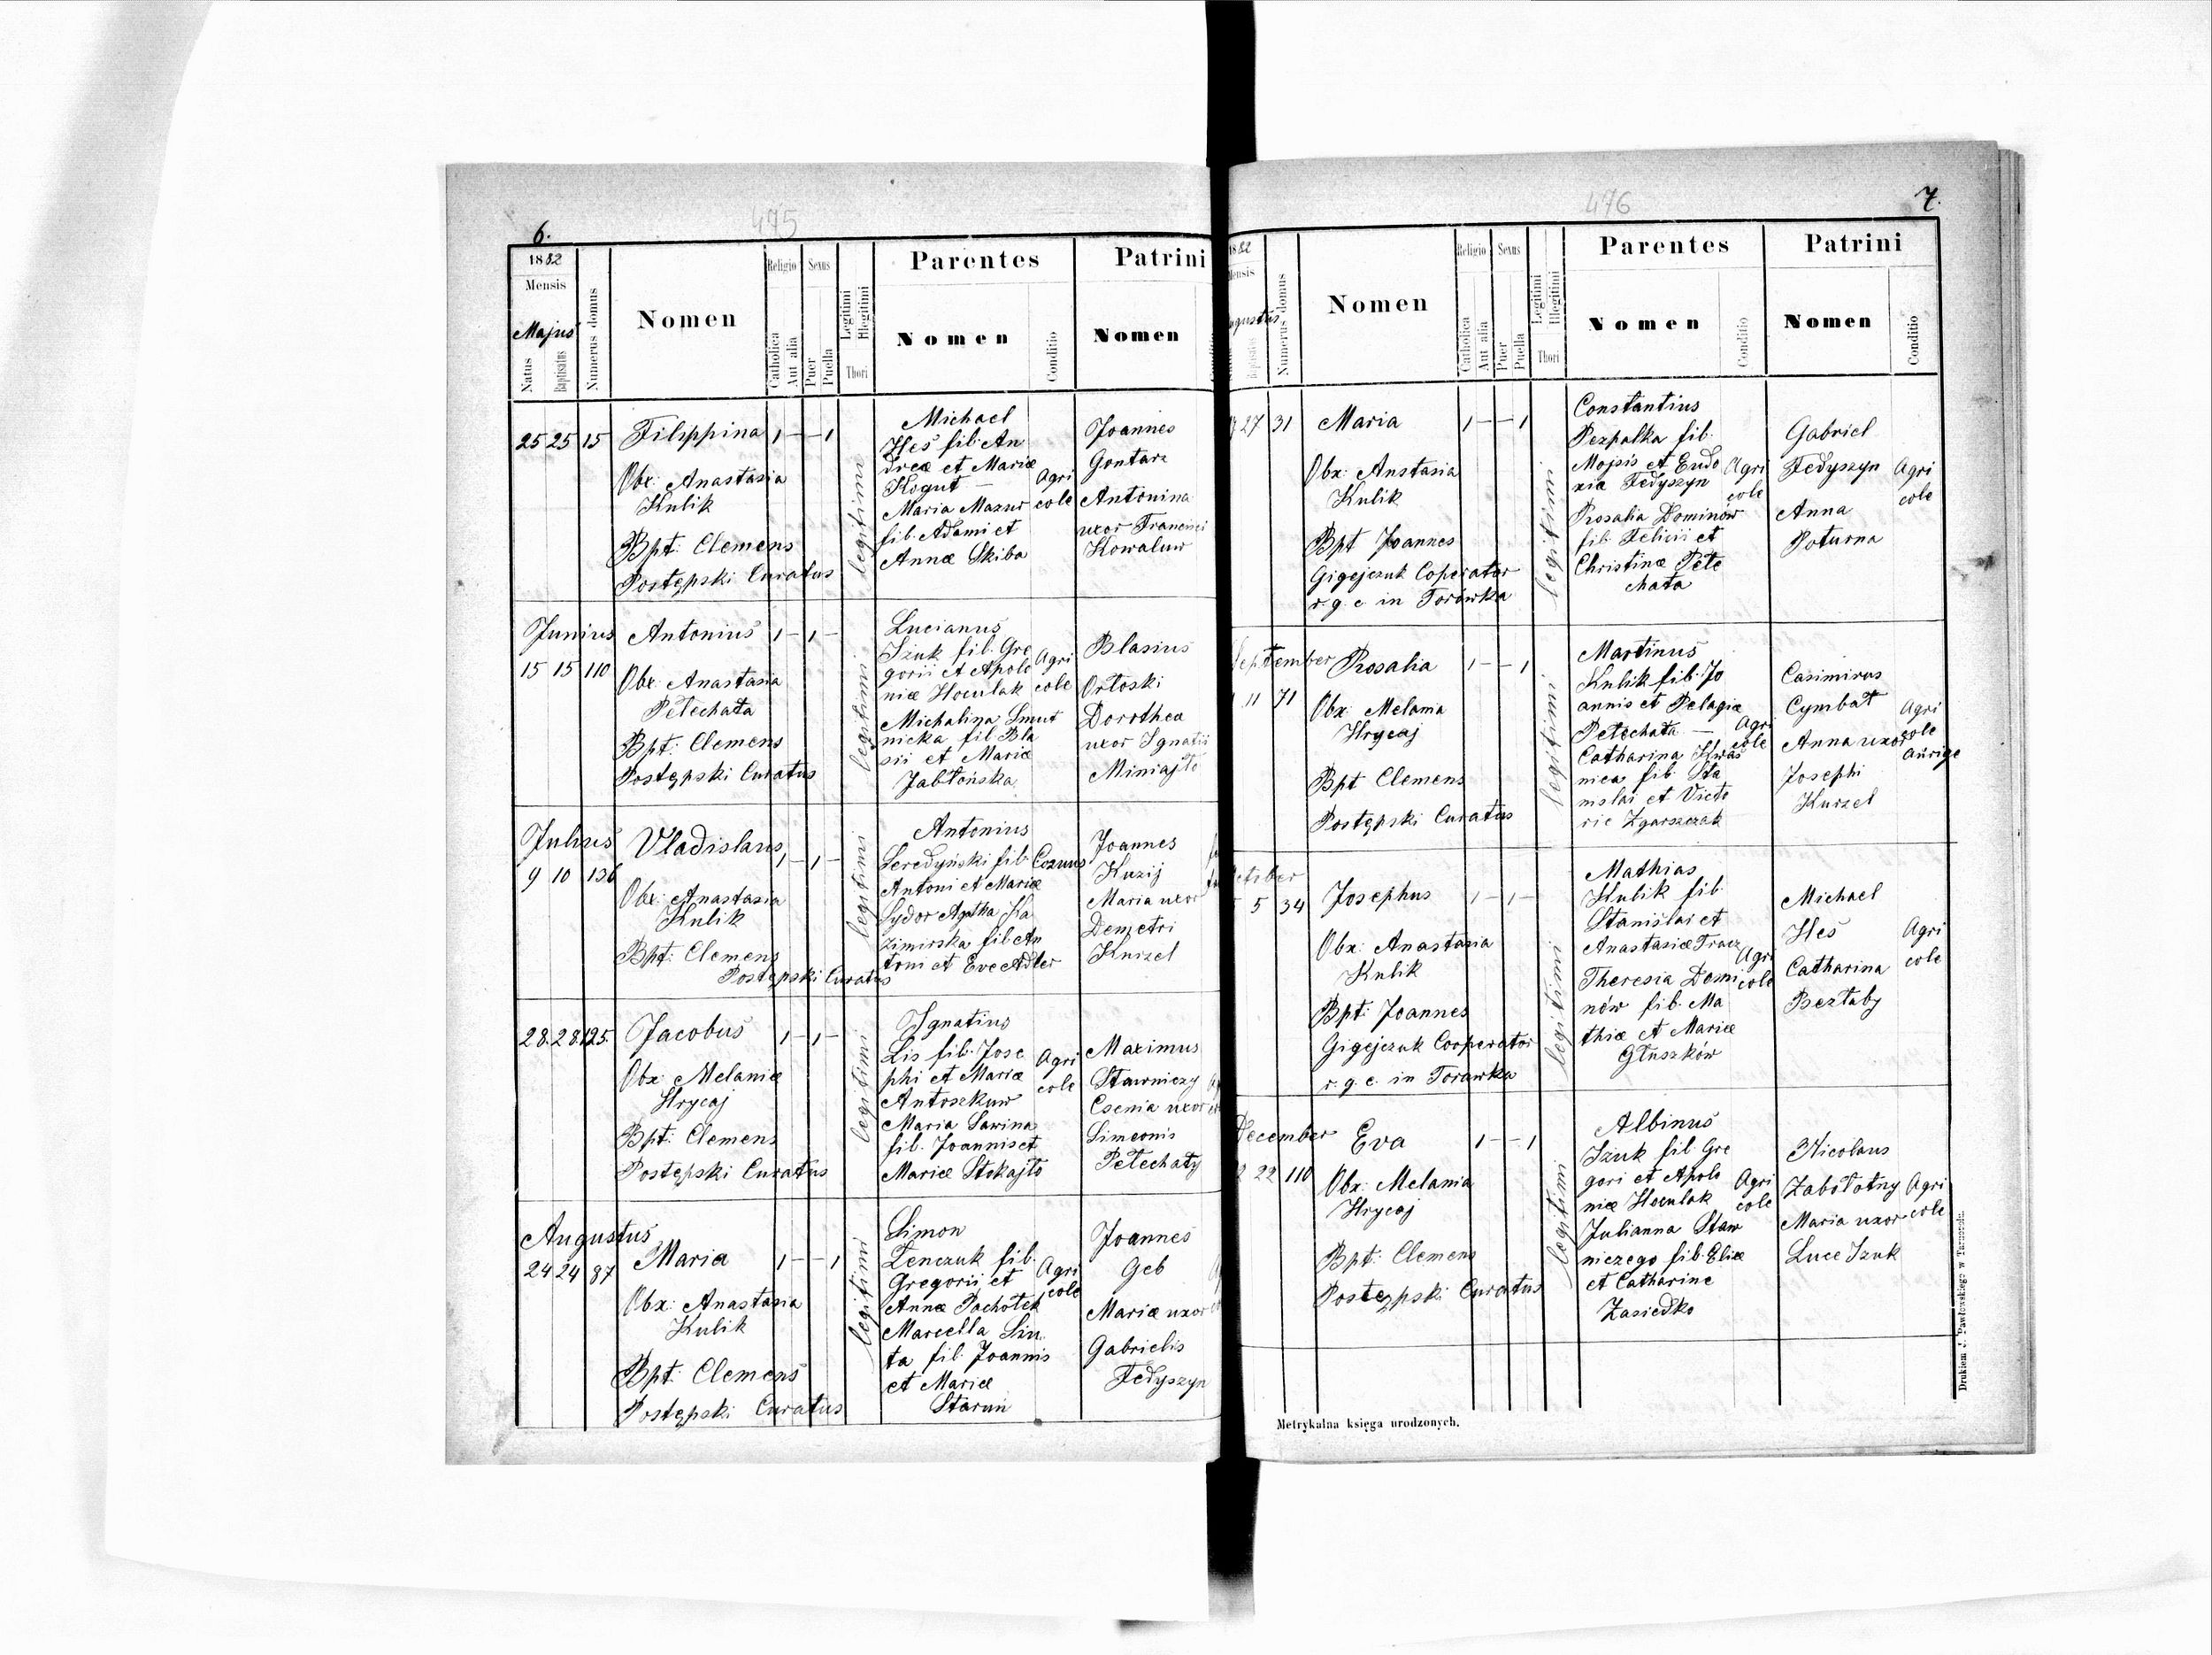 6.
475
1882
Mensis
Majus
Natus
Baptisatus
Numerus domus
Nomen
Religio
Catholica
Aut alia
Sexus
Puer
Puella
Legitimi
Illegitimi
Thori
Parentes
Nomen
Conditio
Patrini
Nomen
25 25 15
Filippina
1 – – 1
Obx: Anastasia
Kulik
Bpt: Clemens
Postępski Curatus
legitimi
Michael
Hes fil. An
dreæ et Mariæ
Kogut –
Maria Mazur
fil. Adami et
Annæ Skiba
Agri
cole
Joannes
Gontarz
Antonina
uxor Francisci
Kowaluw
Junius
15 15 110
Antonius
1 – 1 –
Obx: Anastasia
Petechata
Bpt: Clemens
Postępski Curatus
legitimi
Lucianus
Szuk fil. Gre
gorii et Apolo
niæ Hoculak
Michalina Smut
nicka fil. Bla
sii et Mariæ
Jabłońska
Agri
cole
Blasius
Ortoski
Dorothea
uxor Ignatii
Miniajło
Julius
9 10 136
Vladislaus
1 – 1 –
Obx: Anastasia
Kulik
Bpt: Clemens
Postępski Curatus
legitimi
Antonius
Seredyński fil.
Antoni et Mariæ
Sydor Agatka Ka
zimirska fil. An
toni et Eve Adler
Joannes
Kuzij
Maria uxor
Demetri
Knizel
28. 28. 125.
Jacobus
1 – 1 –
Obx: Melaniæ
Hrycaj
Bpt: Clemens
Postępski Curatus
legitimi
Ignatius
Lis fil. Jose
phi et Mariæ
Antoszkuw
Maria Sawina
fil. Joannis et
Mariæ Stokajło
Agri
cole
Maximus
Stawniczy
Csenia uxor
Simeonis
Petechaty
Augustus
24 24 87
Maria
1 – – 1
Obx: Anastasia
Kulik
Bpt: Clemens
Postępski Curatus
legitimi
Simon
Lenczuk fil.
Gregorii et
Annæ Pochotek
Marcella Siu
ta fil. Joannis
et Mariæ
Starun
Agri
cole
Joannes
Geb
Mariæ uxor
Gabrielis
Fedyszyn
476
7.
1882
Mensis
Baptisatus
Numerus domus
Nomen
Religio
Catholica
Aut alia
Sexus
Puer
Puella
Legitimi
Illegitimi
Thori
Parentes
Nomen
Conditio
Patrini
Nomen
Conditio
27 31
Maria
1 – – 1
Obx: Anstasia
Kulik
Bpt Joannes
Gigejczuk Coperator
r. g. c. in Torówka
legitimi
Constantius
Pezpalka fil.
Mojsis et Eudo
xia Fedyszyn
Rosalia Dominów
fil. Felicii et
Christinæ Pete
chata
Agri
cole
Gabriel
Fedyszyn
Anna
Poturna
Agri
cole
September
11 71
Rosalia
1 – – 1
Obx: Melania
Hrycaj
Bpt Clemens
Postępski Curatus
legitimi
Martinus
Kulik fil. Jo
annis et Pelagiæ
Petechata –
Catharina Kwaś
nica fil. Sta
nislai et Victo
rie Zgarszczak
Agri
cole
Casimirus
Cymbał
Anna uxor
Josephi
Kurzel
Agri
cole
Aurige
October
5 34
Josephus
1 – 1 –
Obx: Anastasia
Kulik
Bpt: Joannes
Gigejczuk Corperator
r. g. c. in Torawka
legitimi
Mathias
Kulik fil.
Stanislai et
Anastasiæ Tracz
Theresia Domi
nów fil. Ma
thiæ et Mariæ
Głuszków
Agri
cole
Michael
Hes
Catharina
Beztaby
Agri
cole
December
22 110
Eva
1 – – 1
Obx: Melania
Hrycaj
Bpt: Clemens
Postępski Curatus
legitimi
Albinus
Szuk fil. Gre
gori et Apolo
niæ Hoculak
Julianna Staw
niczego fil. Eliæ
et Catharine
Zasiedko
Agri
cole
Nicolaus
Zabołotny
Maria uxor
Luce Szuk
Agri
cole
Metrykalna księga urodzonych.
Drukiem J. Pawłowskiego w Tarnopolu.